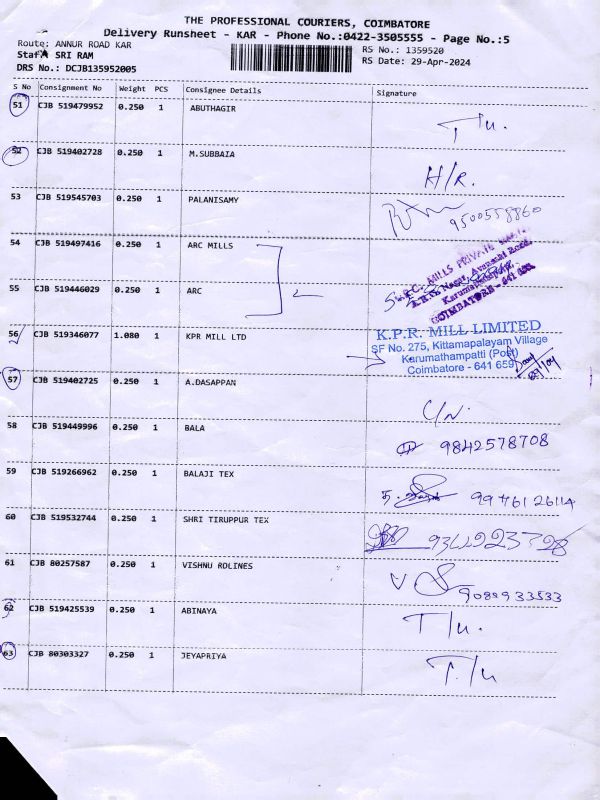 THE PROFESSIONAL COURIERS, COIMBATORE
Delivery Runsheet - KAR - Phone No.:0422-3505555 - Page No.:5
Route: ANNUR ROAD KAR
RS No.: 1359520
Staff: SRI RAM
RS Date: 29-Apr-2024
DRS No.: DCJB135952005
S No Consignment No Weight PCS Consignee Details Signature
51 CJB 519479952 0.250 1 ABUTHAGIR T/u.
52 CJB 519402728 0.250 1 M.SUBBAIA H/R.
53 CJB 519545703 0.250 1 PALANISAMY 9500558860
54 CJB 519497416 0.250 1 ARC MILLS
MILLS PRIVATE
Nagar, Avanashi Road,
COIMBATORE - 641
55 CJB 519446029 0.250 1 ARC
56 CJB 519346077 1.080 1 KPR MILL LTD
K.P.R. MILL LIMITED
SF No. 275, Kittamapalayam Village
Karumathampatti (Post)
Coimbatore - 641 659
57 CJB 519402725 0.250 1 A.DASAPPAN
58 CJB 519449996 0.250 1 BALA 9842578708
59 CJB 519266962 0.250 1 BALAJI TEX
60 CJB 519532744 0.250 1 SHRI TIRUPPUR TEX
61 CJB 80257587 0.250 1 VISHNU RDLINES
62 CJB 519425539 0.250 1 ABINAYA T/u.
63 CJB 80303327 0.250 1 JEYAPRIYA T/u